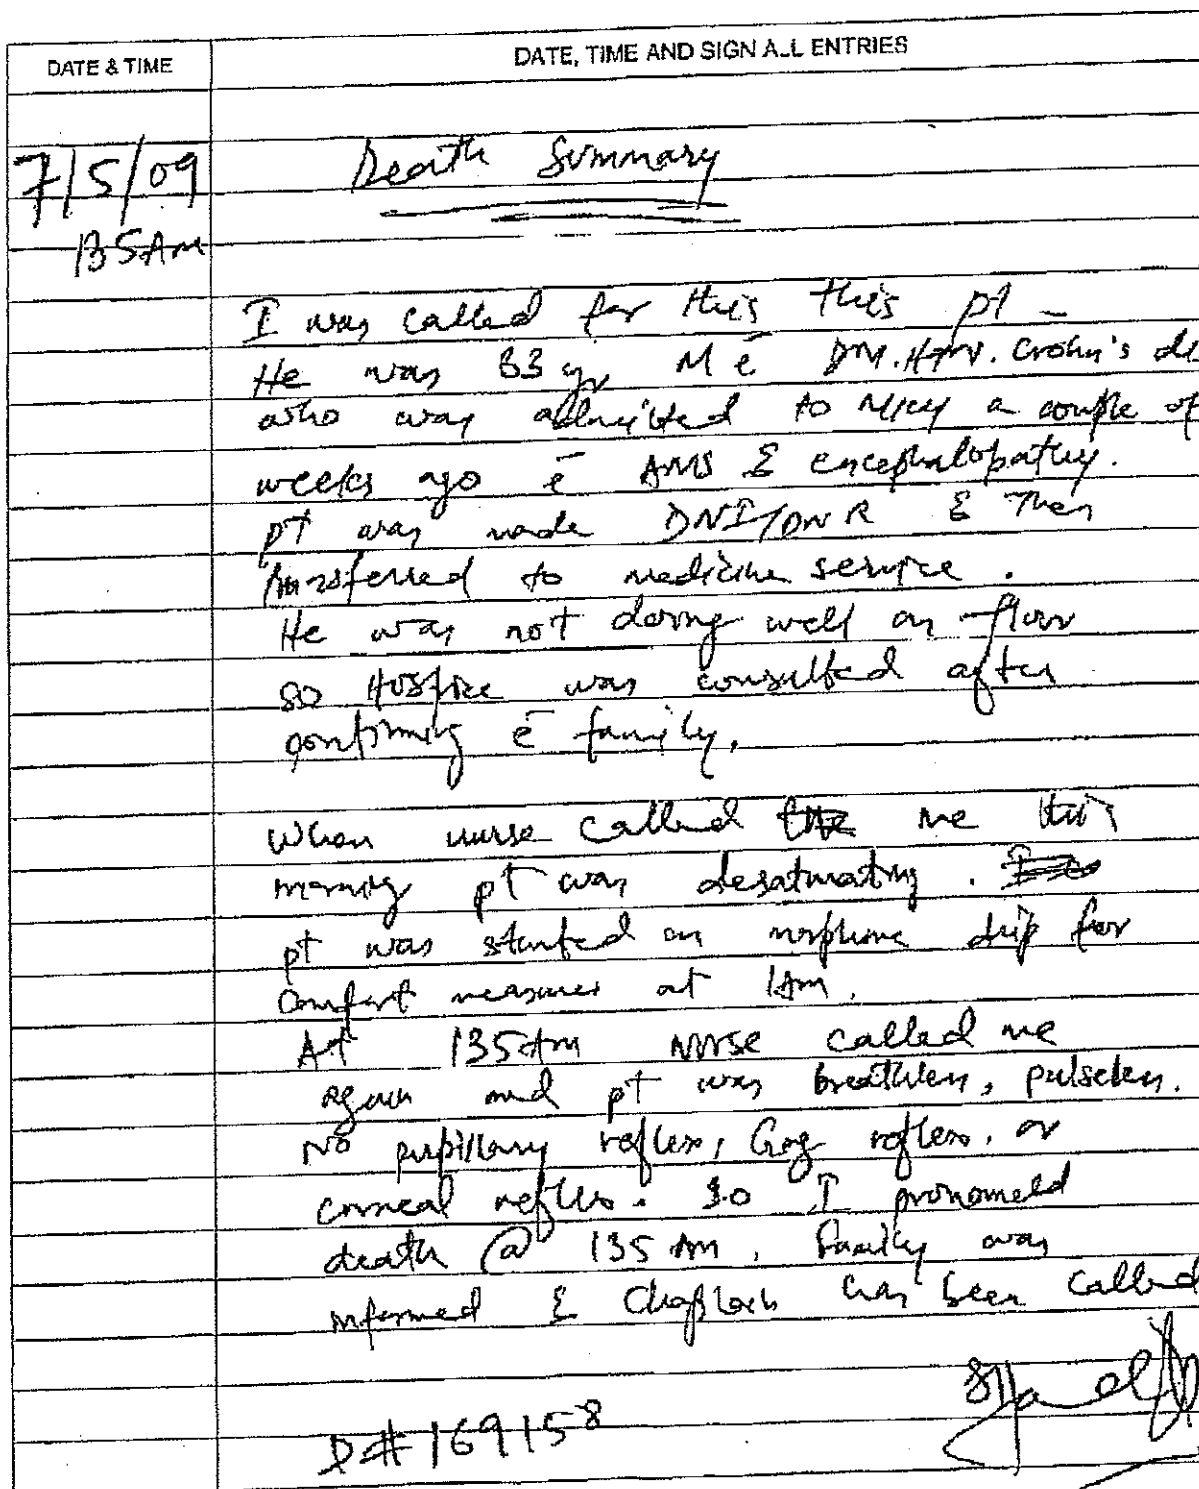 DATE & TIME
DATE, TIME AND SIGN ALL ENTRIES
7/5/09
135AM
Death Summary
I was called for this this pt -
He was 83 yr M c̄ DM. HTN. Crohn's
who was admitted to MICU a couple of
weeks ago c̄ AMS & encephalopathy.
pt was made DNI/DNR & then
transferred to medicine service.
He was not doing well on floor
so Hospice was consulted after
confirming c̄ family.
When nurse called me this
morning pt was desaturating.
pt was started on morphine drip for
comfort measures at 1Am.
At 135Am nurse called me
again and pt was breathless, pulseless.
No pupillary reflex, Gag reflex, or
corneal reflex. So I pronounced
death @ 135 Am. Family was
informed & Chaplain has been called
D#169158